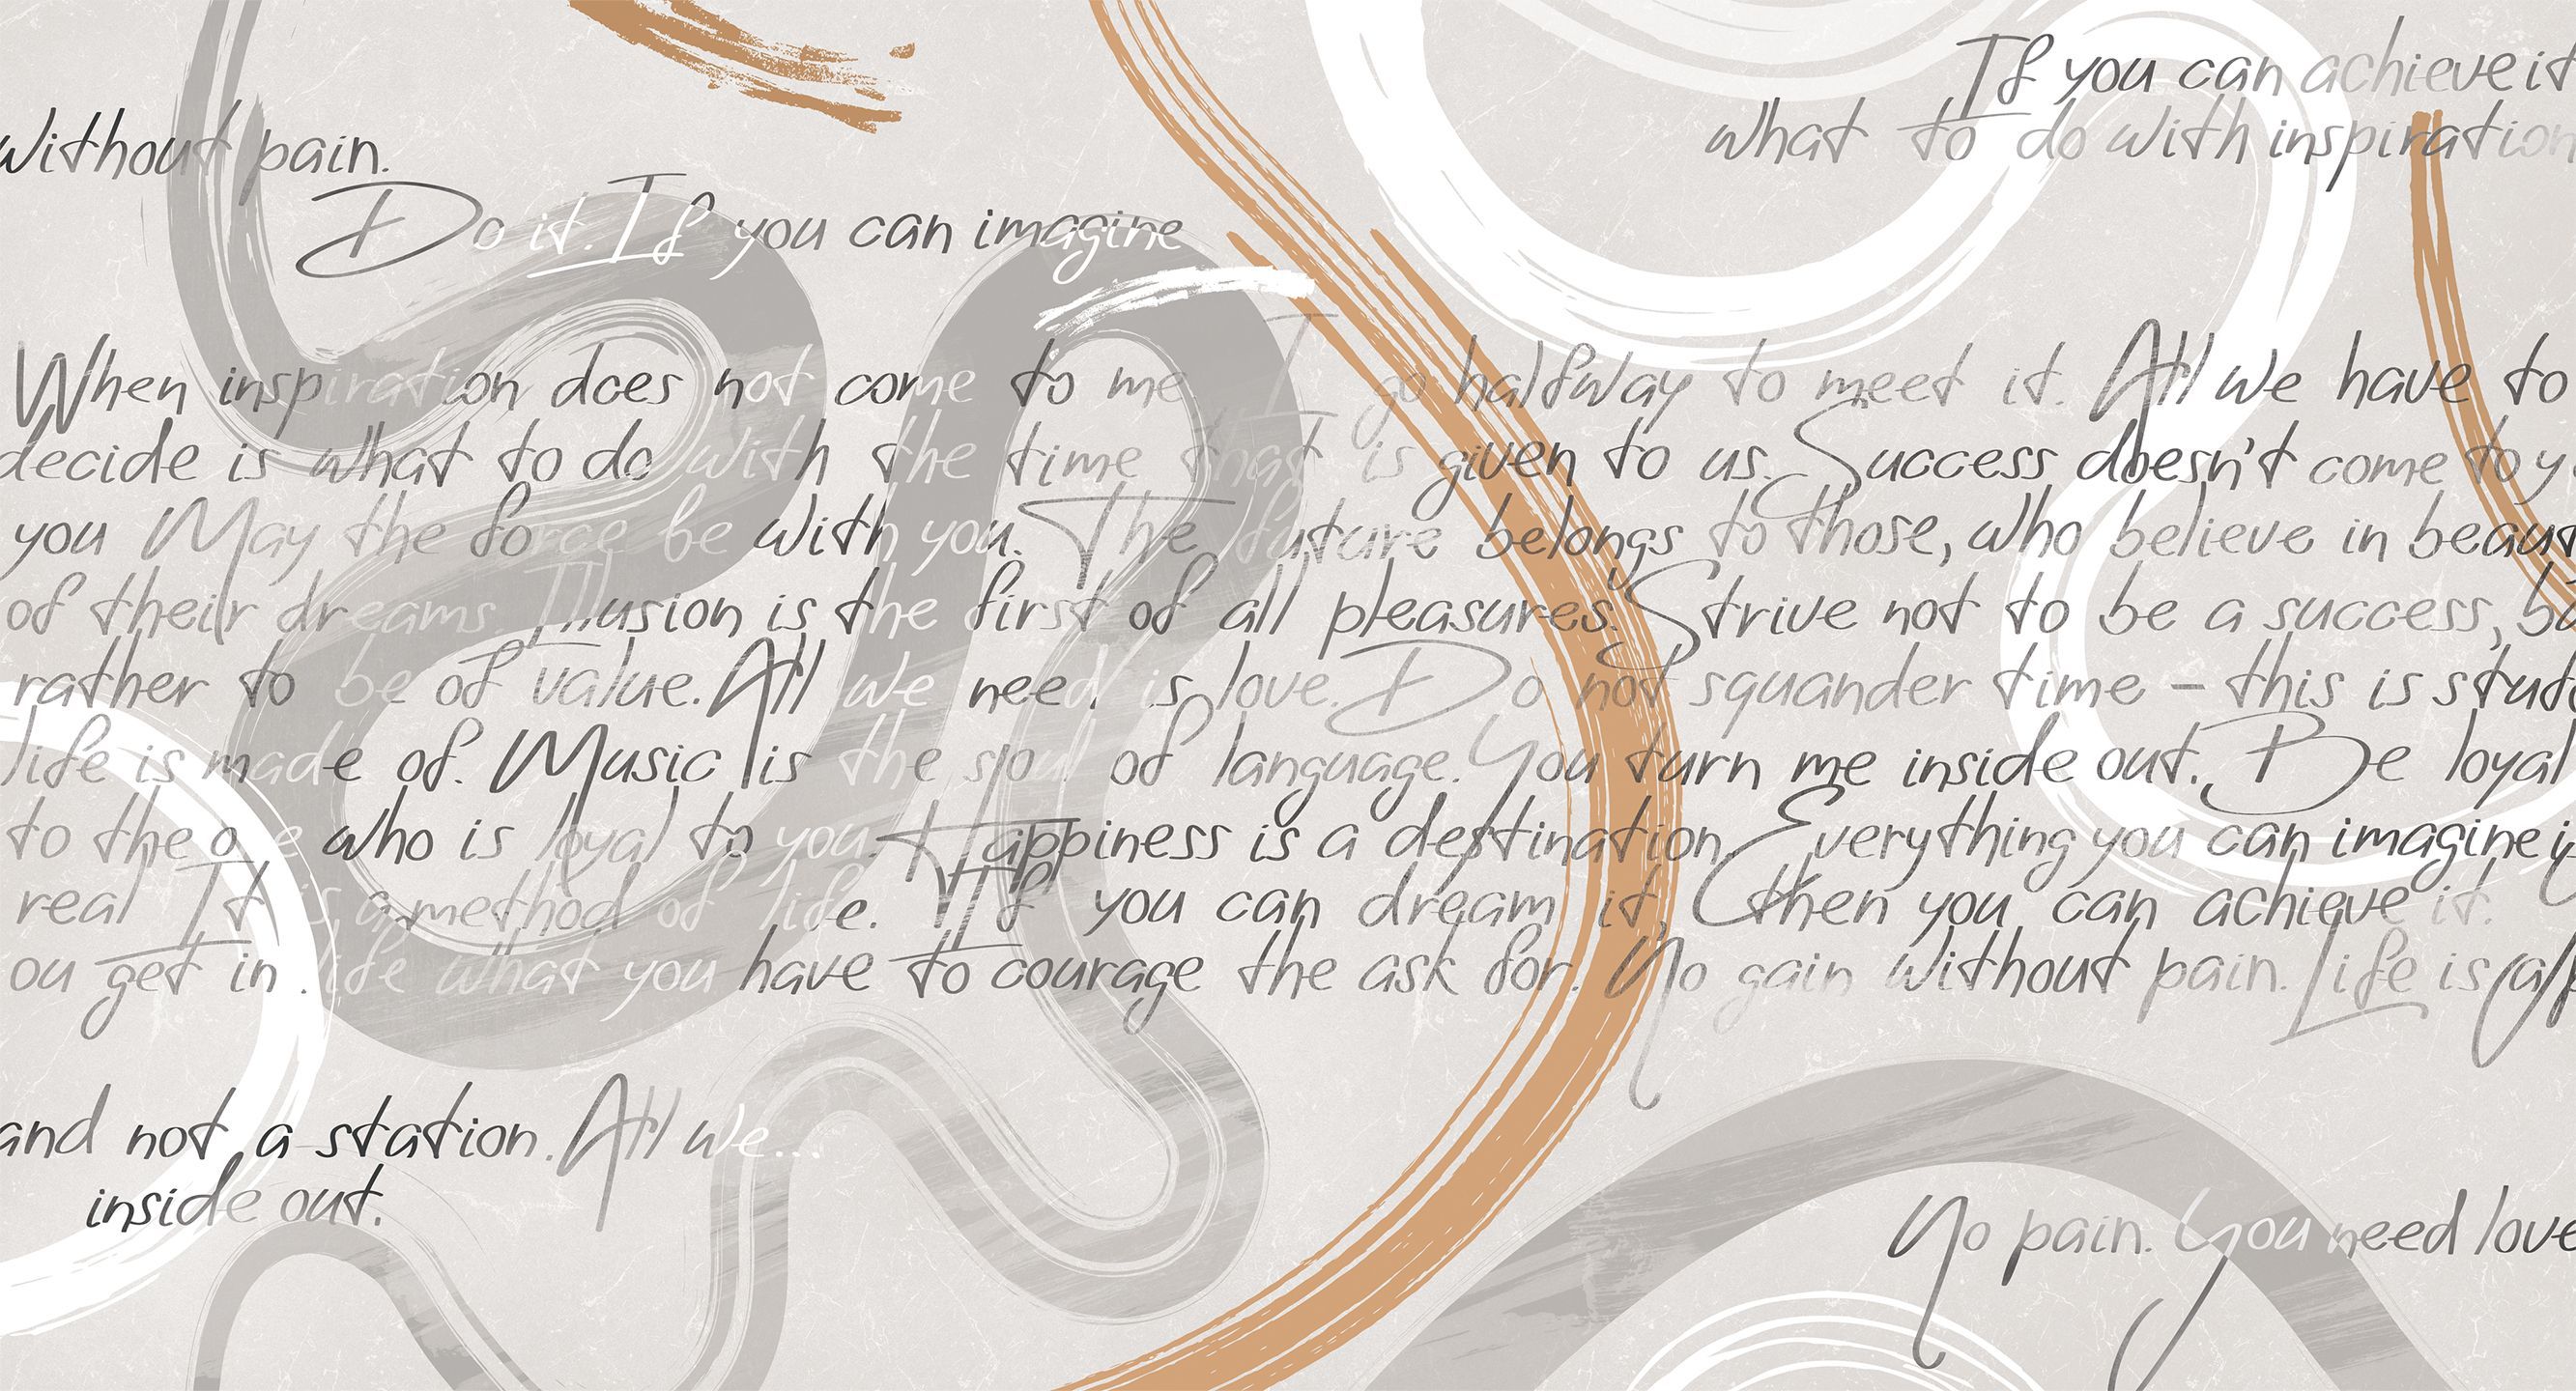 If you can achieve it
what to do with inspiration
without pain.
Do it. If you can imagine
When inspiration does not come to me I go halfway to meet it. All we have to
decide is what to do with the time that is given to us. Success doesn't come to y
you May the force be with you. The future belongs to those, who believe in beaut
of their dreams Illusion is the first of all pleasures. Strive not to be a success, bu
rather to be of value. All we need is love. Do not squander time – this is stuf
life is made of. Music is the soul of language. You turn me inside out. Be loyal
to the o e who is loyal to you. Happiness is a destination. Everything you can imagine i
real It is a method of life. If you can dream it, then you can achieve it.
ou get in life what you have to courage the ask for. No gain without pain. Life is
and not a station. All we...
inside out.
No pain. You need love